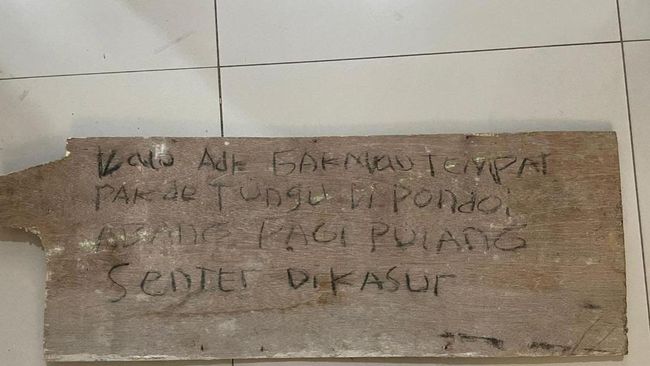 Kalo Adk GAK MAU TEMPAT
PAK de TUNGU Di PONDOi
ABANG PAGI PULANG
SENTER DIKASUr